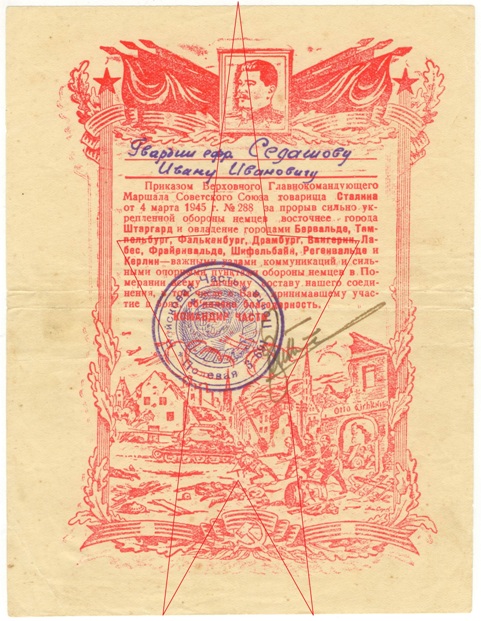 Гвардии ефр. Седашову
Ивану Ивановичу
Приказом Верховного Главнокомандующего
Маршала Советского Союза товарища Сталина
от 4 марта 1945 г. № 288 за прорыв сильно ук-
репленной обороны немцев восточнее города
Штаргард и овладение городами Бервальде, Тем-
пельбург, Фалькенбург, Драмбург, Вангерин, Ла-
бес, Фрайенвальде, Шифельбайн, Регенвальде и
Керлин—важными узлами коммуникаций и силь-
ными опорными пунктами обороны немцев в По-
мерании всему личному составу нашего соеди-
нения, в том числе и Вам, принимавшему учас-
тие в боях, объявлена благодарность.
КОМАНДИР ЧАСТИ
Войсковая Часть
Полевая Почта
Otto